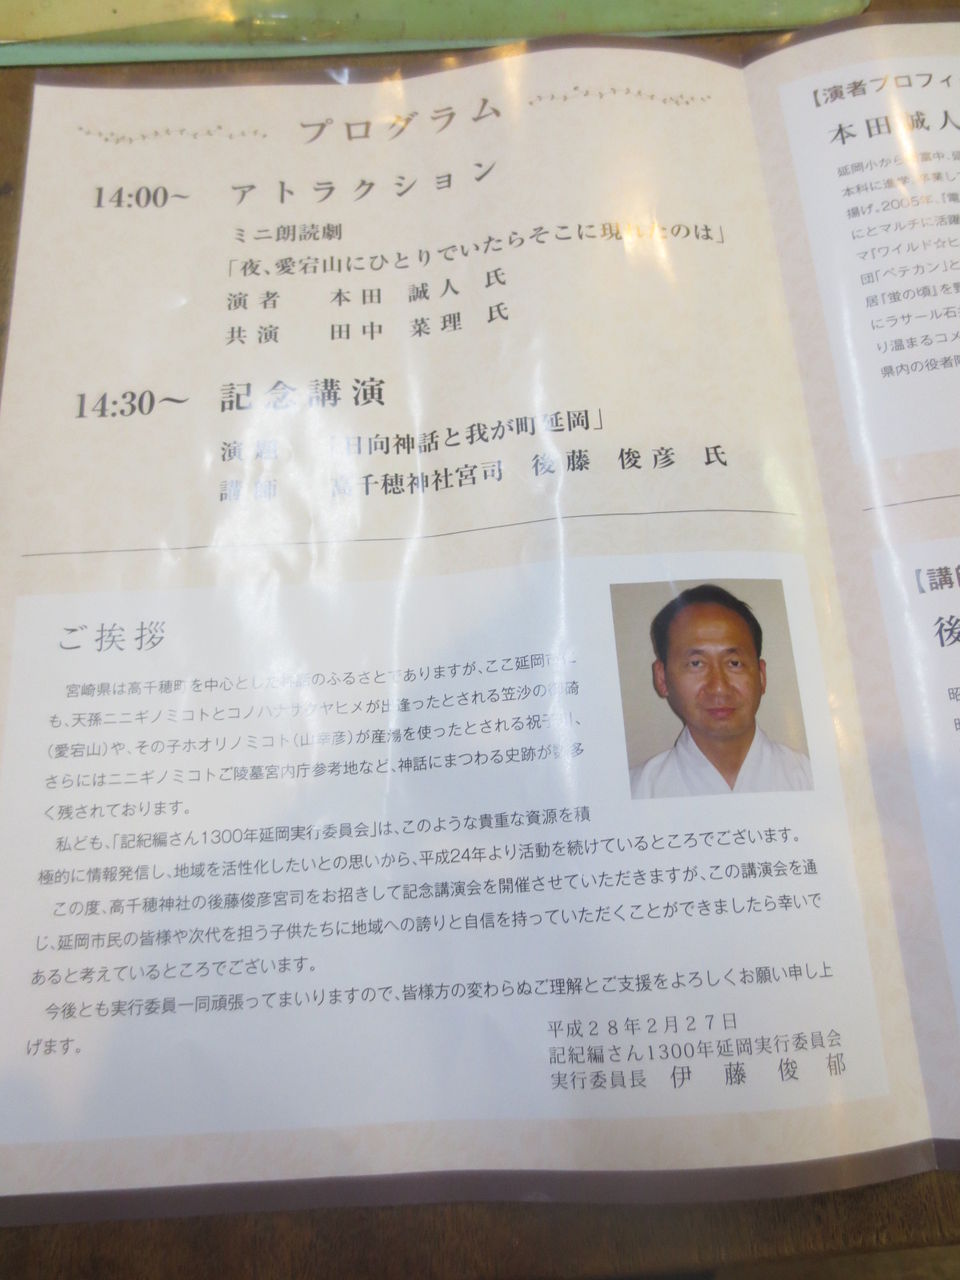 プログラム
14:00~ アトラクション
ミニ朗読劇
「夜、愛宕山にひとりでいたらそこに現れたのは」
演者 本田 誠人 氏
共演 田中 菜理 氏
14:30～ 記念講演
演題 「日向神話と我が町延岡」
講師 高千穂神社宮司 後藤 俊彦 氏
ご挨拶
宮崎県は高千穂町を中心とした神話のふるさとでありますが、ここ延岡市に
も、天孫ニニギノミコトとコノハナサクヤヒメが出逢ったとされる笠沙の御碕
(愛宕山)や、その子ホオリノミコト(山幸彦)が産湯を使ったとされる祝子川、
さらにはニニギノミコトご陵墓宮内庁参考地など、神話にまつわる史跡が数多
く残されております。
私ども、「記紀編さん1300年延岡実行委員会」は、このような貴重な資源を積
極的に情報発信し、地域を活性化したいとの思いから、平成24年より活動を続けているところでございます。
この度、高千穂神社の後藤俊彦宮司をお招きして記念講演会を開催させていただきますが、この講演会を通
じ、延岡市民の皆様や次代を担う子供たちに地域への誇りと自信を持っていただくことができましたら幸いで
あると考えているところでございます。
今後とも実行委員一同頑張ってまいりますので、皆様方の変わらぬご理解とご支援をよろしくお願い申し上
げます。
平成28年2月27日
記紀編さん1300年延岡実行委員会
実行委員長 伊藤俊郁
【演者プロフィ
本田誠人
延岡小から 富中、延
本科に進学、卒業して
揚げ。2005年、「電
にとマルチに活躍
マ『ワイルド☆ヒ
団「ペテカン」と
居『蛍の頃』を野
にラサール石
り温まるコメ
県内の役者陣
【講師
後
昭